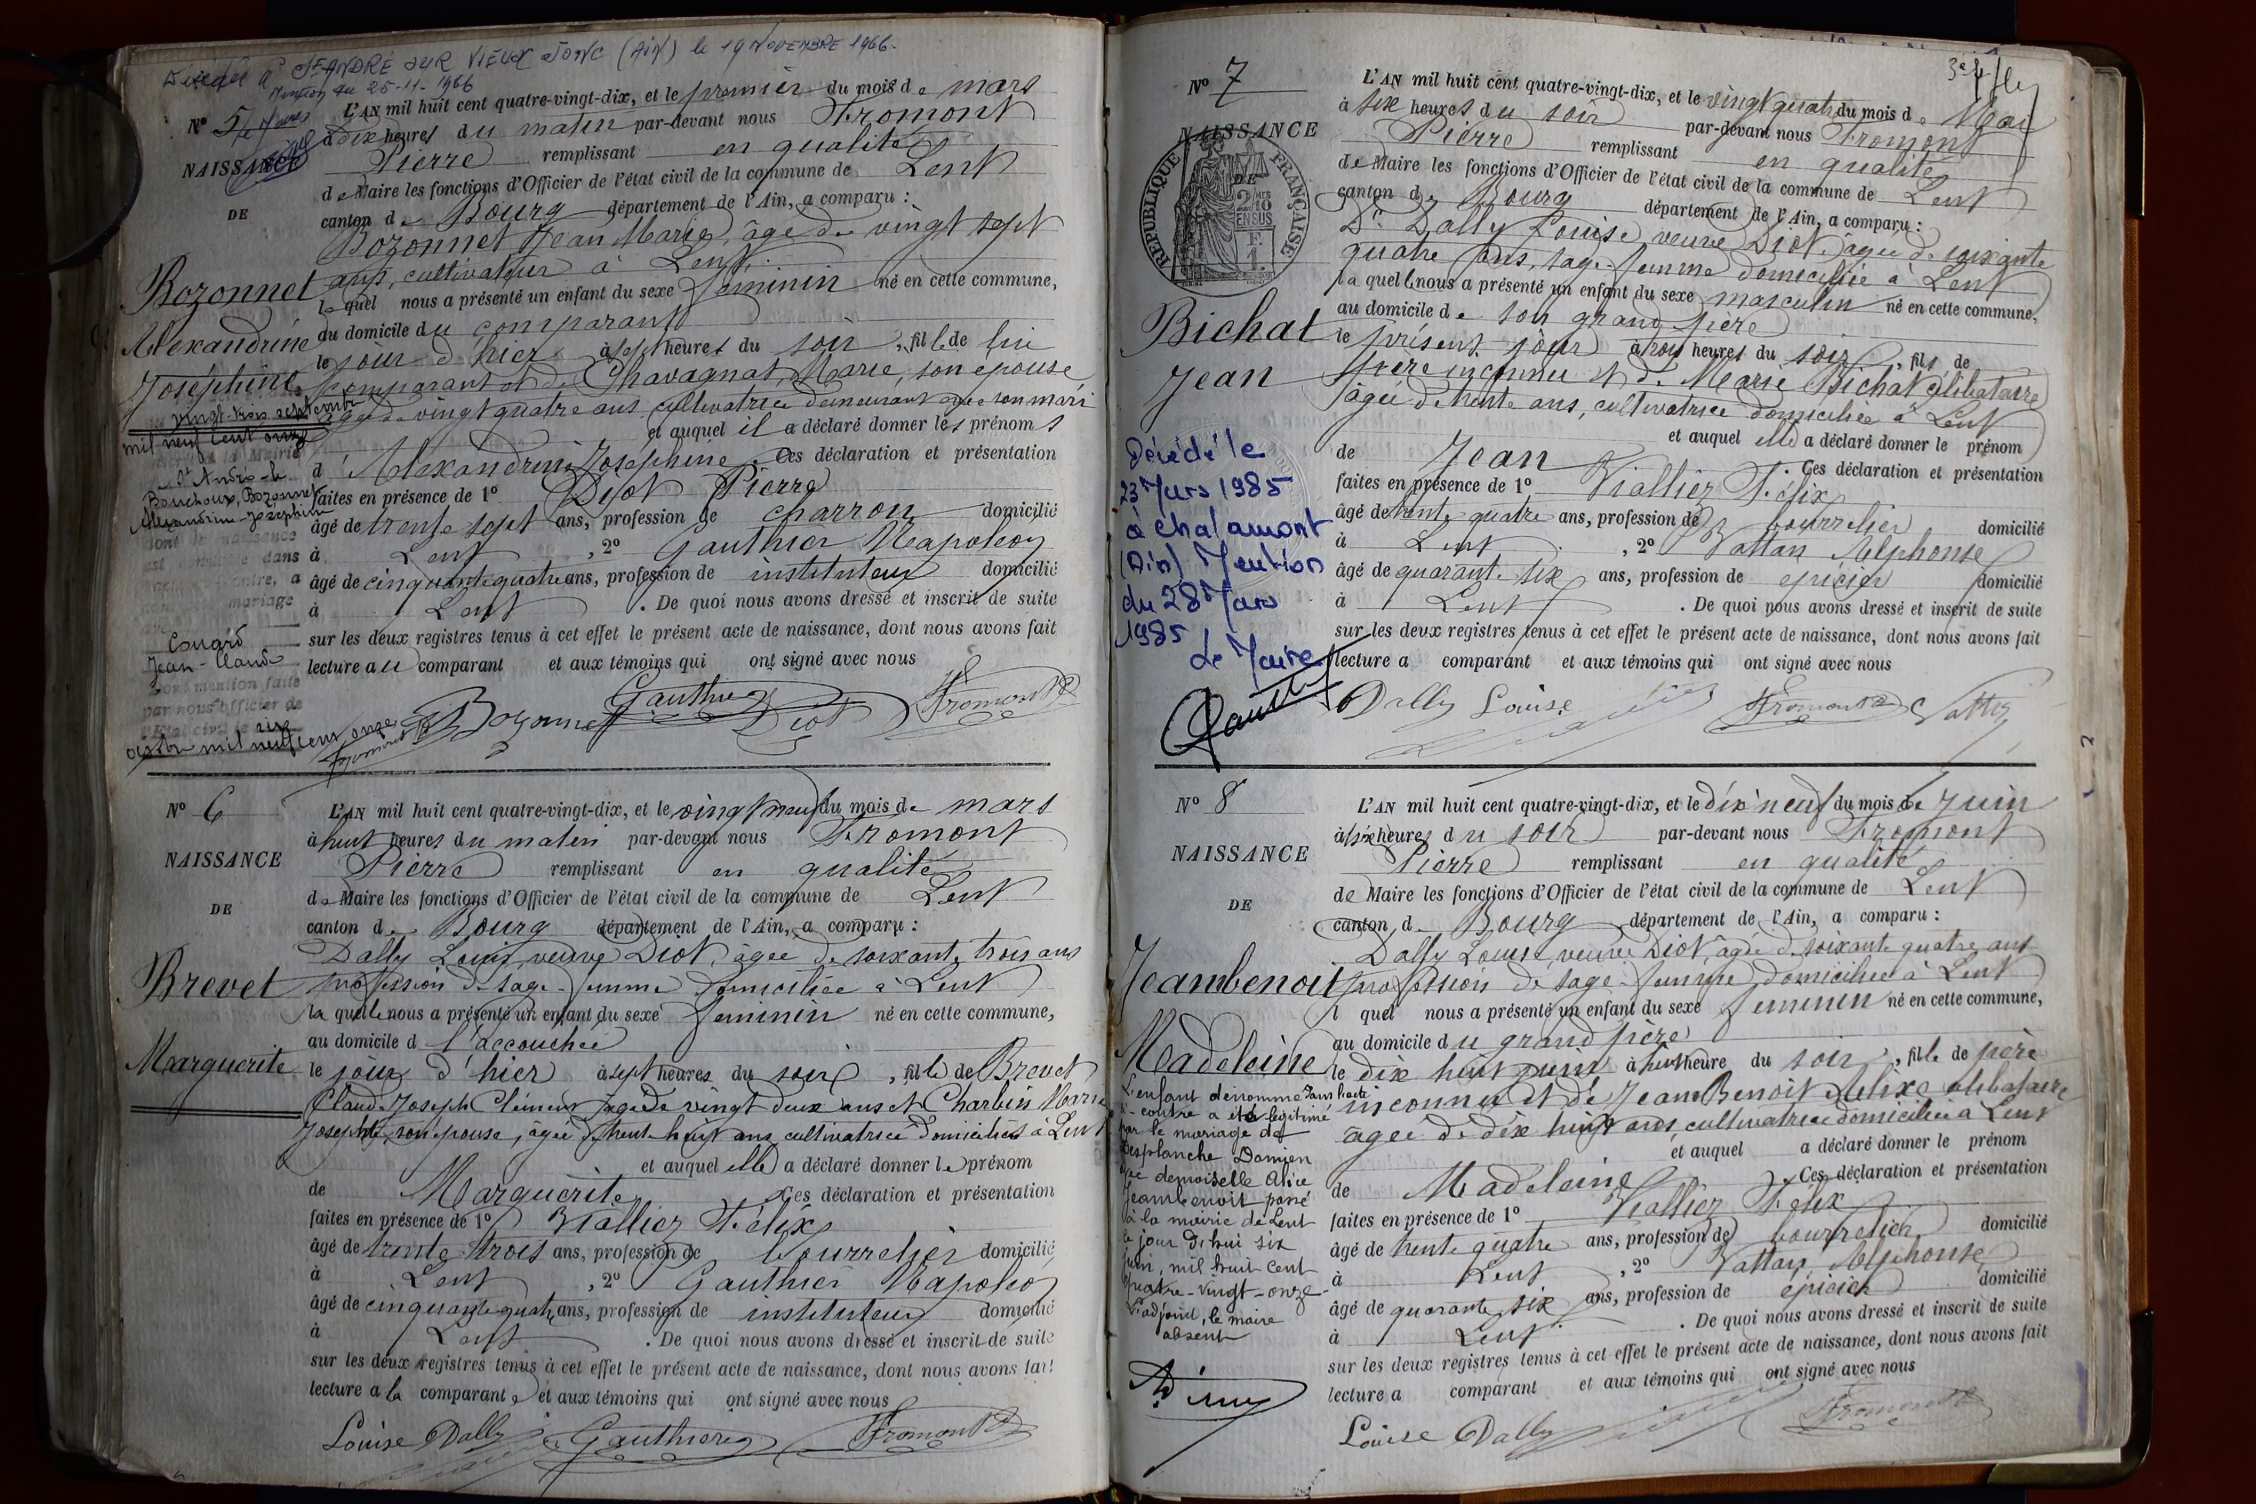 Décédée à St ANDRÉ sur VIEUX JONC (AIN) le 19 NOVEMBRE 1966.
Mention du 25-11-1966
Nº 5
NAISSANCE
DE
Bozonnet
Alexandrine
Joséphine
vingt-trois septembre
mil neuf cent onze
St André-le-
Bouchoux, Bozonnet
Alexandrine-Joséphine
dont la naissance
mariage
Conard
Jean-Claude
dont mention faite
par nous Officier de
l'Etat civil le six
octobre mil neuf cent onze
L'AN mil huit cent quatre-vingt-dix, et le premier du mois de mars
à dix heures du matin par-devant nous Fromont
Pierre remplissant en qualité
de Maire les fonctions d'Officier de l'état civil de la commune de Lent
canton de Bourg département de l'Ain, a comparu :
Bozonnet Jean Marie, âgé de vingt sept
ans, cultivateur à Lent,
lequel nous a présenté un enfant du sexe féminin né en cette commune,
au domicile du comparant
le jour d'hier à sept heures du soir, fille de lui
comparant et de Chavagnat Marie, son épouse
âgée de vingt quatre ans cultivatrice demeurant avec son mari
et auquel il a déclaré donner les prénoms
d'Alexandrine Joséphine. Ces déclaration et présentation
faites en présence de 1º Diot Pierre
âgé de trente sept ans, profession de charron domicilié
à Lent, 2º Gauthier Napoléon
âgé de cinquante quatre ans, profession de instituteur domicilié
à Lent. De quoi nous avons dressé et inscrit de suite
sur les deux registres tenus à cet effet le présent acte de naissance, dont nous avons fait
lecture au comparant et aux témoins qui ont signé avec nous
Bozonnet Gauthier Diot Fromont
Nº 6
NAISSANCE
DE
Brevet
Marguerite
L'AN mil huit cent quatre-vingt-dix, et le vingt neuf du mois de mars
à huit heures du matin par-devant nous Fromont
Pierre remplissant en qualité
de Maire les fonctions d'Officier de l'état civil de la commune de Lent
canton de Bourg département de l'Ain, a comparu :
Dally Louise, veuve Diot, âgée de soixante trois ans
profession de sage-femme domiciliée à Lent
laquelle nous a présenté un enfant du sexe féminin né en cette commune,
au domicile d l'accouchée
le jour d'hier à sept heures du soir, fille de Brevet
Claude Joseph Clément âgé de vingt deux ans et Charbin Marie
Josephte, son épouse, âgée de trente huit ans cultivatrice domiciliés à Lent
et auquel elle a déclaré donner le prénom
de Marguerite. Ces déclaration et présentation
faites en présence de 1º Viallier Félix
âgé de trente trois ans, profession de bourrelier domicilié
à Lent, 2º Gauthier Napoléon
âgé de cinquante quatre ans, profession de instituteur domicilié
à Lent. De quoi nous avons dressé et inscrit de suite
sur les deux registres tenus à cet effet le présent acte de naissance, dont nous avons fait
lecture a la comparante et aux témoins qui ont signé avec nous
Louise Dally Gauthier Fromont
Nº 7
NAISSANCE
DE
RÉPUBLIQUE FRANÇAISE
Bichat
Jean
Décédé le
23 Mars 1985
à Chalamont
(Ain) Mention
du 28 Mars
1985
Le Maire
L'AN mil huit cent quatre-vingt-dix, et le vingt quatre du mois de Mai
à six heures du soir par-devant nous Fromont
Pierre remplissant en qualité
de Maire les fonctions d'Officier de l'état civil de la commune de Lent
canton de Bourg département de l'Ain, a comparu :
De Dally Louise, veuve Diot, âgée de soixante
quatre ans, sage-femme domiciliée à Lent
laquelle nous a présenté un enfant du sexe masculin né en cette commune,
au domicile de son grand père
le présent jour à trois heures du soir, fils de
père inconnu et de Marie Bichat célibataire
âgée de trente ans, cultivatrice domiciliée à Lent
et auquel elle a déclaré donner le prénom
de Jean. Ces déclaration et présentation
faites en présence de 1º Viallier Félix
âgé de trente quatre ans, profession de bourrelier domicilié
à Lent, 2º Vattan Alphonse
âgé de quarante six ans, profession de épicier domicilié
à Lent. De quoi nous avons dressé et inscrit de suite
sur les deux registres tenus à cet effet le présent acte de naissance, dont nous avons fait
lecture a comparant et aux témoins qui ont signé avec nous
Dally Louise Fromont Vattan
Nº 8
NAISSANCE
DE
Jeambenoit
Madeleine
L'enfant dénommé dans l'acte
ci-contre a été légitimé
par le mariage de
Desplanche Damien
avec demoiselle Alice
Jeambenoit passé
à la mairie de Lent
ce jour d'hui six
juin, mil huit cent
quatre-vingt-onze-
L'adjoint, le maire
absent
L'AN mil huit cent quatre-vingt-dix, et le dix neuf du mois de Juin
à six heures du soir par-devant nous Fromont
Pierre remplissant en qualité
de Maire les fonctions d'Officier de l'état civil de la commune de Lent
canton de Bourg département de l'Ain, a comparu :
Dally Louise, veuve Diot, âgée de soixante quatre ans
profession de sage-femme, domiciliée à Lent
l quel nous a présenté un enfant du sexe féminin né en cette commune,
au domicile du grand père
le dix huit juin à huit heure du soir, fille de père
inconnu et de Jeambenoit Alixe célibataire
âgée de dix huit ans, cultivatrice domiciliée à Lent
et auquel a déclaré donner le prénom
de Madeleine. Ces déclaration et présentation
faites en présence de 1º Viallier Félix
âgé de trente quatre ans, profession de bourrelier domicilié
à Lent, 2º Vattan Alphonse
âgé de quarante six ans, profession de épicier domicilié
à Lent. De quoi nous avons dressé et inscrit de suite
sur les deux registres tenus à cet effet le présent acte de naissance, dont nous avons fait
lecture a comparant et aux témoins qui ont signé avec nous
Louise Dally Fromont